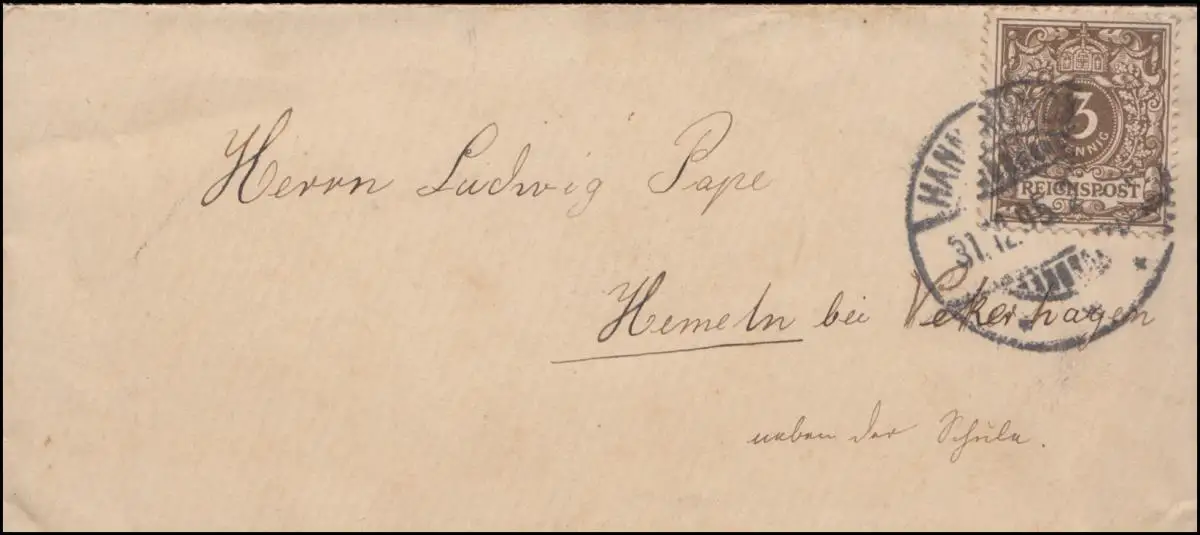 3
PFENNIG
REICHSPOST
MANN
31.12.95
Herrn Ludwig Pape
Hemeln bei Vekerhagen
neben der Schule.